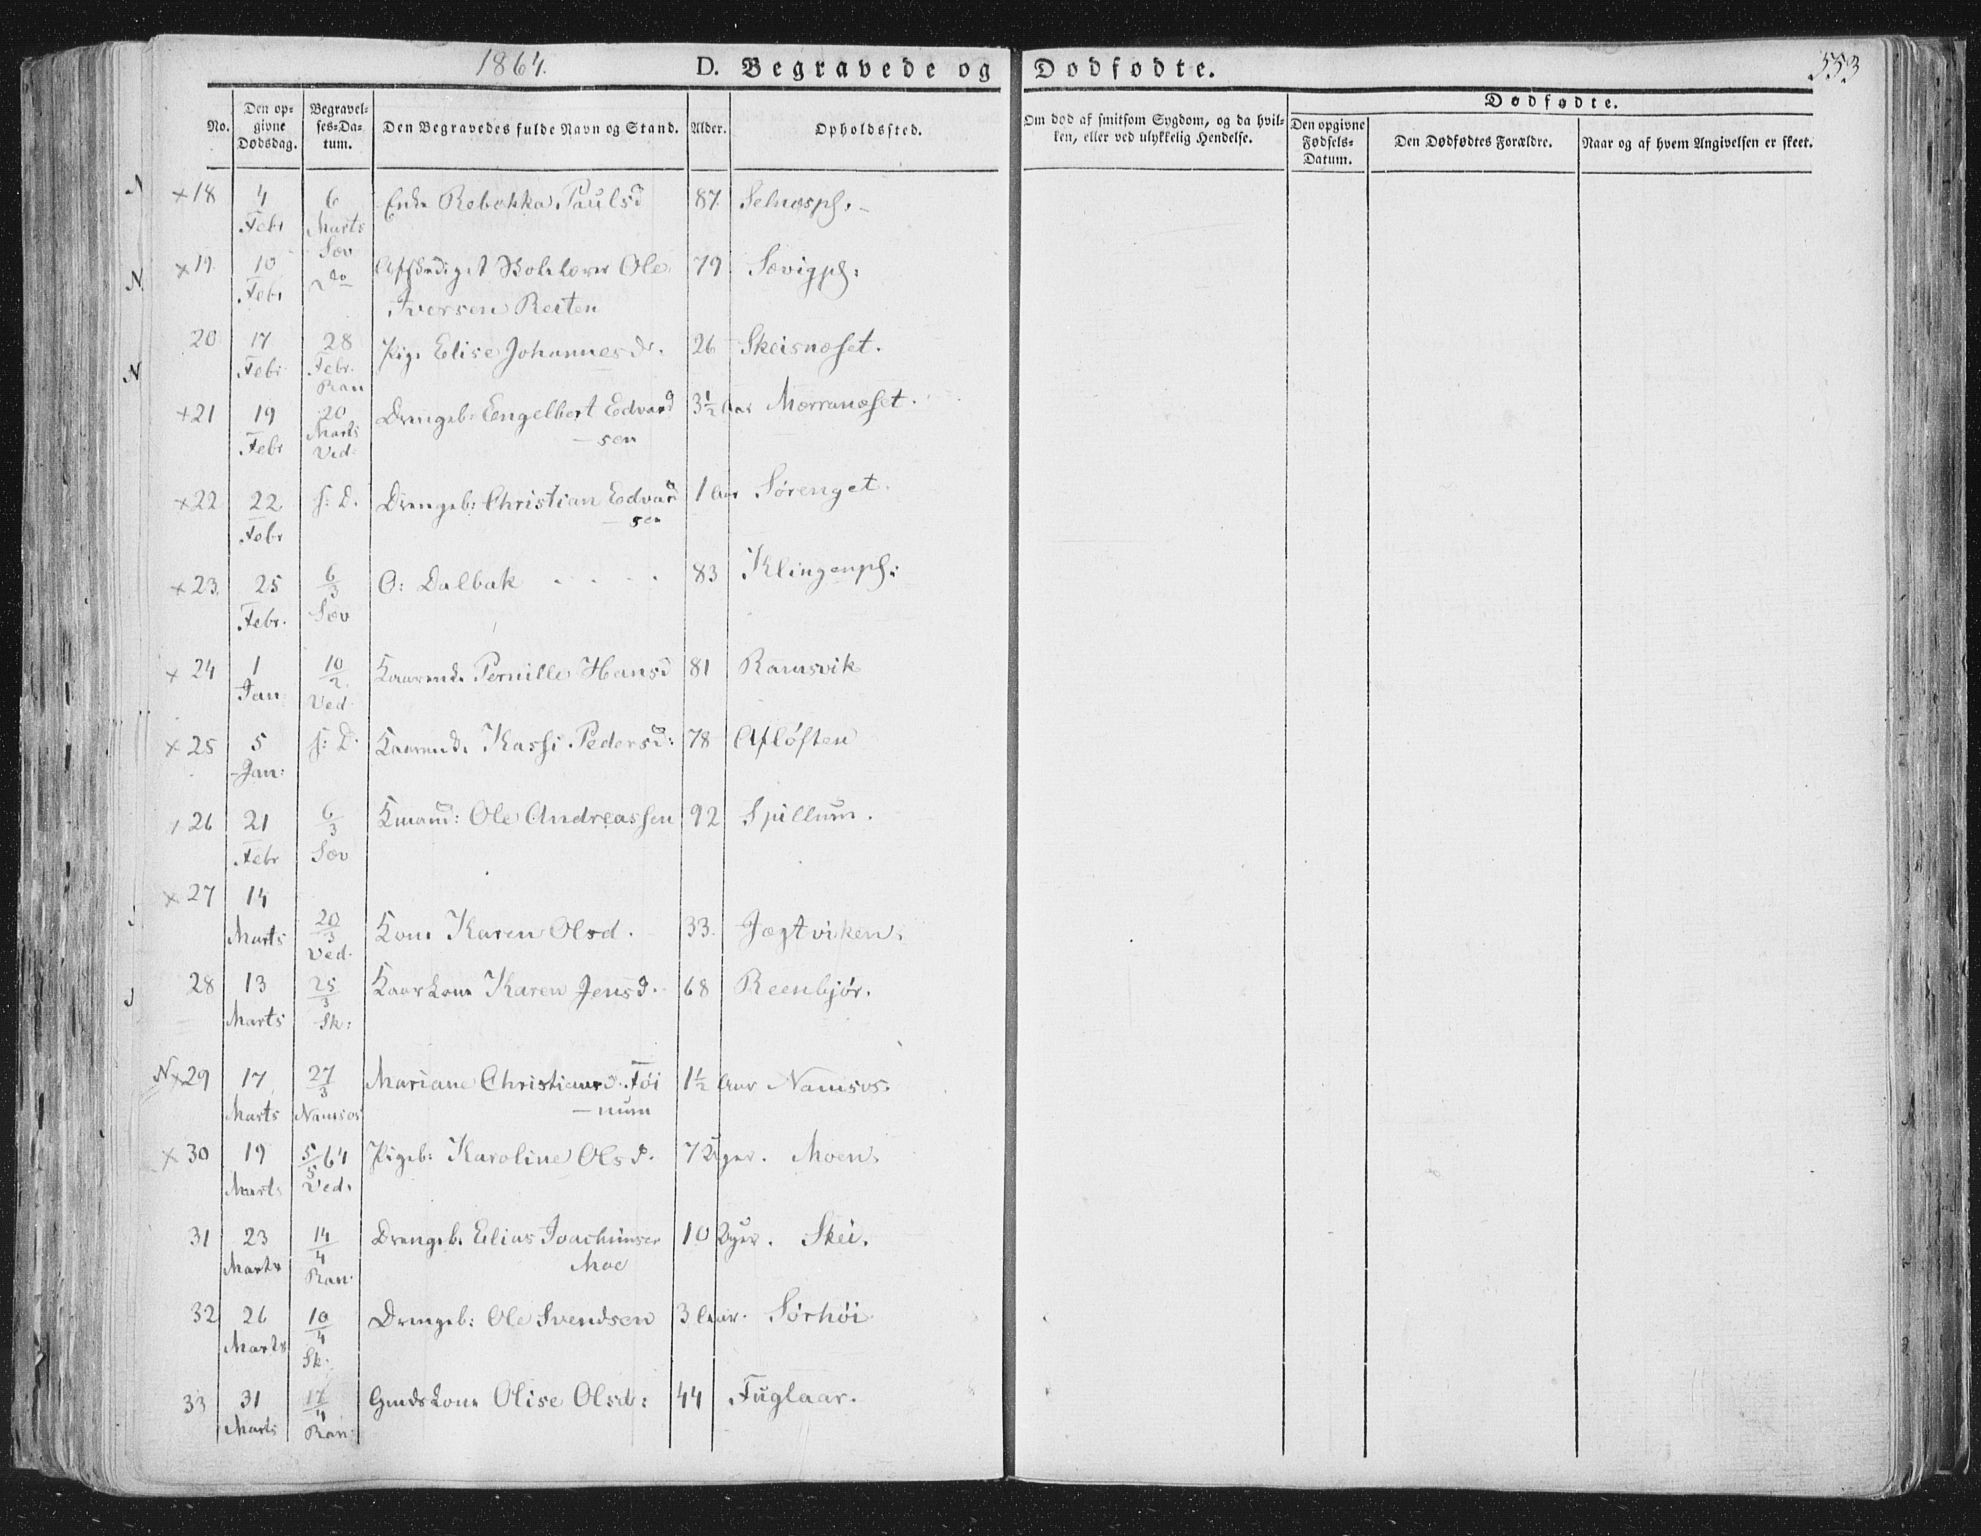 1864. D. Begravede og Dødfødte. 553
No. Den opgivne Dødsdag. Begravelses-Datum. Den Begravedes fulde Navn og Stand. Alder. Opholdssted. Om død af smitsom Sygdom, og da hvilken, eller ved ulykkelig Hendelse. Dødfødte. Den opgivne Fødsels-Datum. Den Dødfødtes Forældre. Naar og af hvem Angivelsen er skeet.
N × 18 4 Febr 6 Marts Sæv Enke Rebekka Paulsd 87 Selnæspl.
N. × 19. 10 Febr do Ole 79 Sævigpl:
Iversen Reiten
N 20 17 Febr 28 Febr. Ran Pige Elise Johannesdr. 26 Skeisnæset.
× 21 19 Febr 20 Marts Ved: Drengeb: Engelbert Edvard 3½ Aar Merranæset.
— sen
× 22 22 Febr s: D. Drengeb: Christian Edvard 1 Aar Sørenget.
— sen
× 23. 25 Febr. 6/3 Sæv O: Dalbak . . . . 83 Klingenpl:
× 24 1 Jan: 10/2 Ved. Kaarenke Pernille Hansd 81 Ramsvik
× 25 5 Jan: s: D. Kaarenke Kassi Pedersd: 78 Afløften
× 26 21 Febr 6/3 Sæv Kmand: Ole Andreassen 92 Spillum.
× 27 14 Marts 20/3 Ved. Kone Karen Olsd. 33. Jægtviken.
28 13 Marts 25/3 Sk: Kaarkone Karen Jensd. 68 Reenbjør.
N × 29 17 Marts 27/3 Namsos Mariane Christiansd. Føi 1½ Aar Namsos.
— num
× 30 19 Marts 5/5 64 Ved. Pigeb: Karoline Olsd. 7 Uger. Moen.
31 23 Marts 14/4 Ran. Drengeb. Elias Joachimsen 10 Uger. Skei.
Moe
32 26 Marts 10/4 Sk. Drengeb: Ole Svendsen 3 Aar. Sørhøi
33 31 Marts 17/4 Ran: Gmdskone Olise Olsd: 44 Fuglaar.